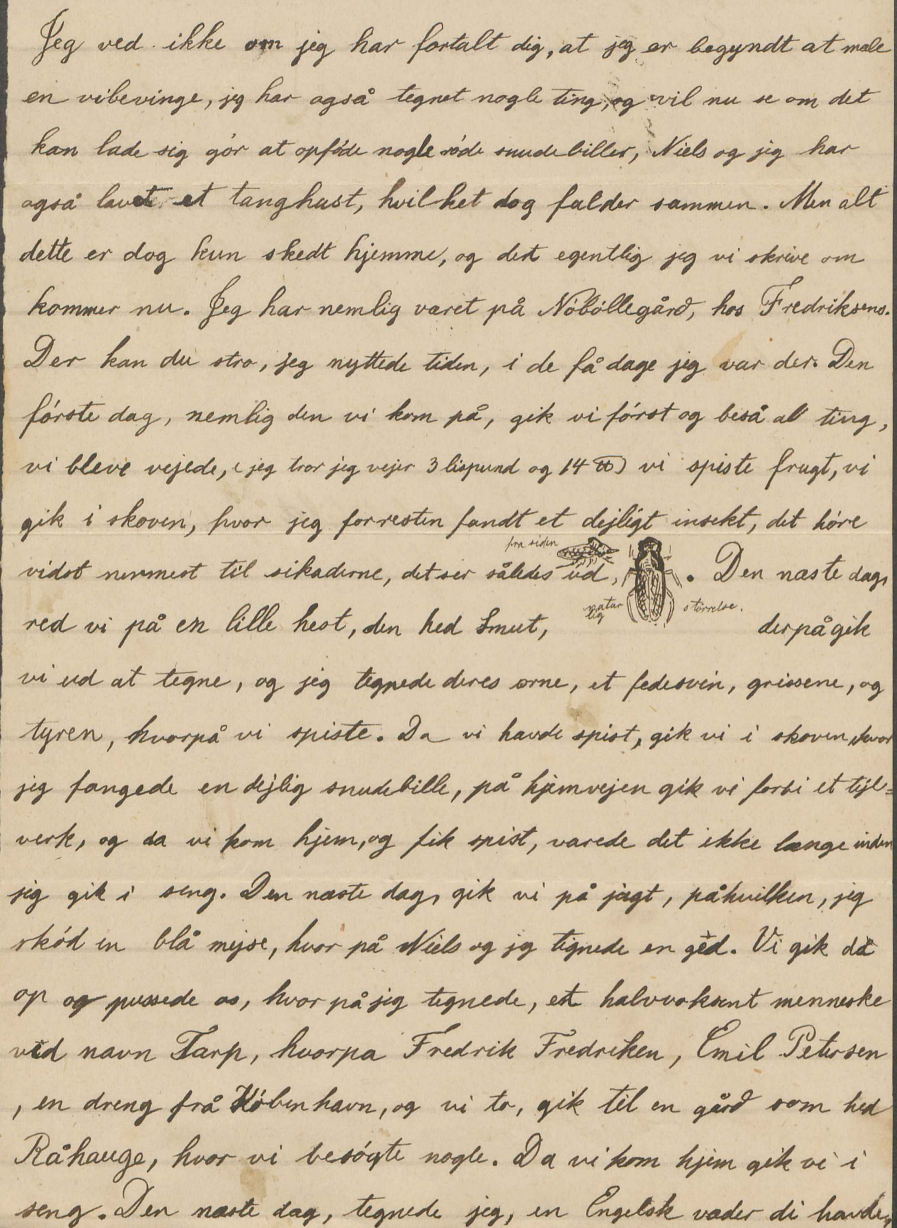 Jeg ved ikke om jeg har fortalt dig, at jeg er begyndt at male
en vibevinge, jeg har også tegnet nogle ting, og vil nu se om det
kan lade sig gór at opføde nogle røde snudebiller, Niels og jeg har
også lavet et tanghust, hvilket dog falder sammen. Men alt
dette er dog kun skedt hjemme, og det egentlig jeg vi skrive om
kommer nu. Jeg har nemlig været på Nóbóllegård, hos Fredriksens.
Der kan du stro, jeg nyttede tiden, i de få dage jeg var der. Den
fórste dag, nemlig den vi kom på, gik vi fórst og beså al ting,
vi bleve vejede, (jeg tror jeg vejer 3 lispund og 14 ℔) vi spiste frugt, vi
gik i skoven, hvor jeg forresten fandt et dejligt insekt, det hóre
fra siden
vidst nermest til sikaderne, det ser således ud, . Den næste dag,
naturlig størrelse.
red vi på en lille hest, den hed Smut, derpå gik
vi ud at tegne, og jeg tegnede deres orne, et fedesvin, grissene, og
tyren, hvorpå vi spiste. Da vi havde spist, gik vi i skoven, hvor
jeg fangede en dejlig snudebille, på hjemvejen gik vi forbi et tejl=
verk, og da vi kom hjem, og fik spist, varede det ikke længe inden
jeg gik i seng. Den næste dag, gik vi på jagt, påhvilken, jeg
skód en blå mejse, hvor på Niels og jeg tegnede en gèd. Vi gik då
op og pussede os, hvor på jeg tegnede, et halvvoksent menneske
ved navn Tarp, hvorpa Fredrik Fredriken, Emil Petersen
, en dreng frå Kóbenhavn, og vi to, gik til en gård som hed
Råhauge, hvor vi besógte nogle. Da vi kom hjem gik vi i
seng. Den næste dag, tegnede jeg, en Engelsk væder di havde,